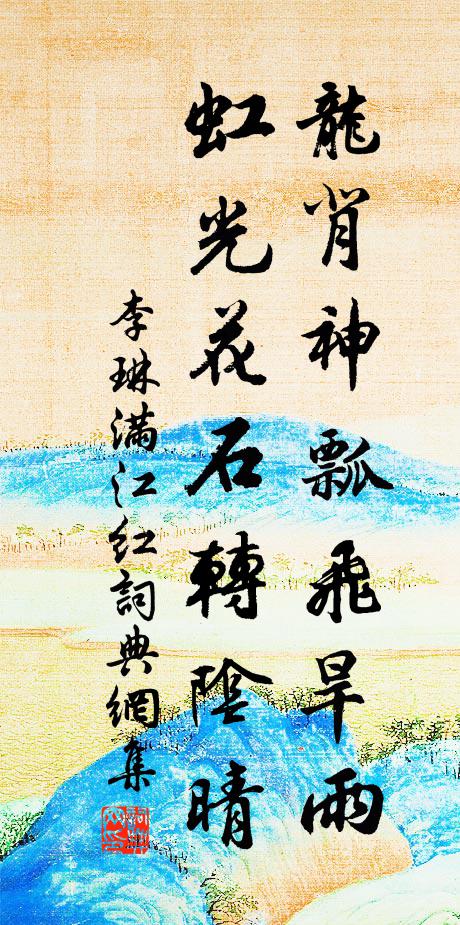 龍背神瓢飛旱雨
虹光花石轉陰晴
李琳滿江红詞典網集